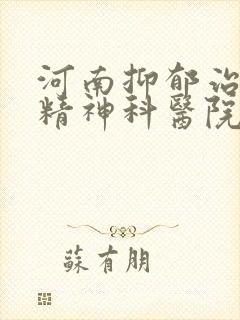 河南抑郁治
精神科醫院
蘇有朋